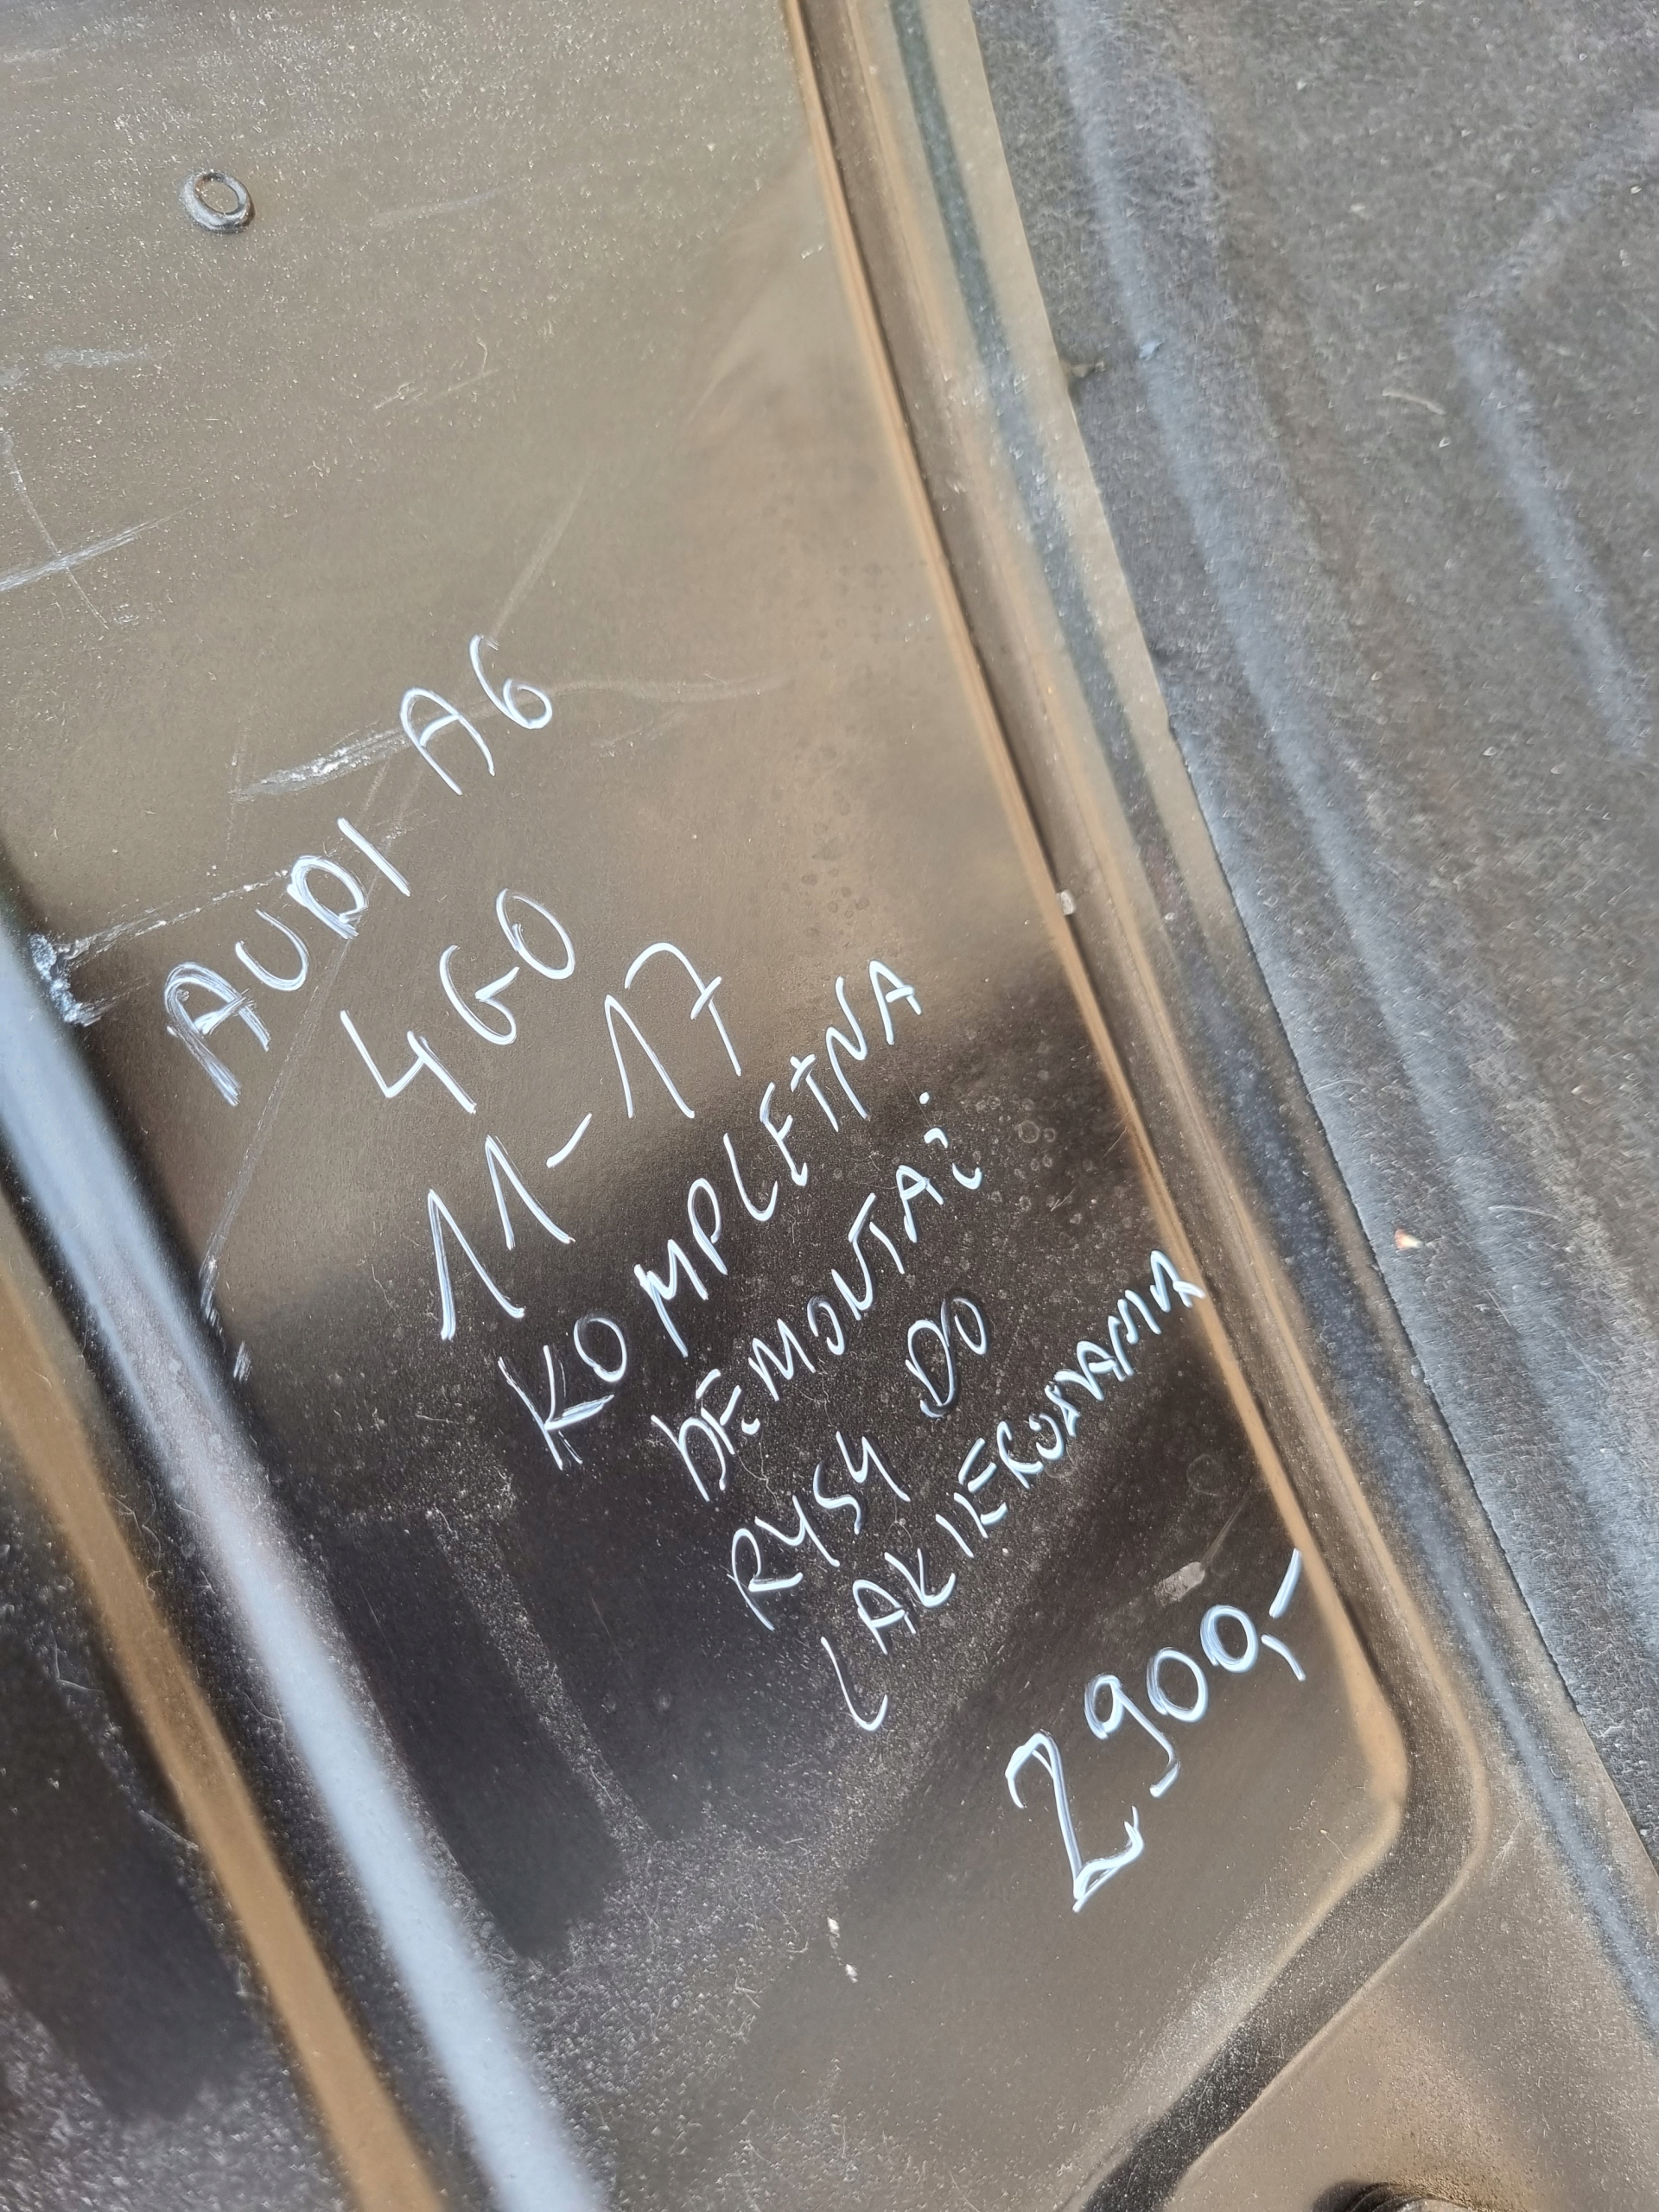 AUDI A6
4G0
11-17
KOMPLETNA
DEMONTAŻ
RYSY DO
LAKIEROWANIA
2900,-